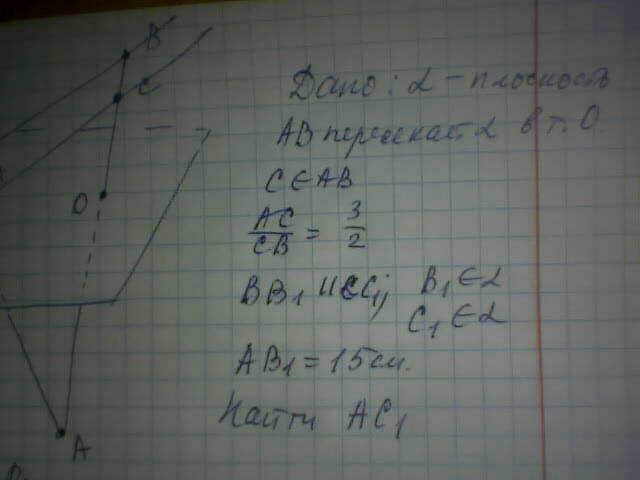 B
C
O
A
Дано: α - плоскость
AB пересекает α в т. O.
C ∈ AB
AC/CB = 3/2
BB₁ || CC₁, B₁ ∈ α
C₁ ∈ α
AB₁ = 15 см.
Найти AC₁